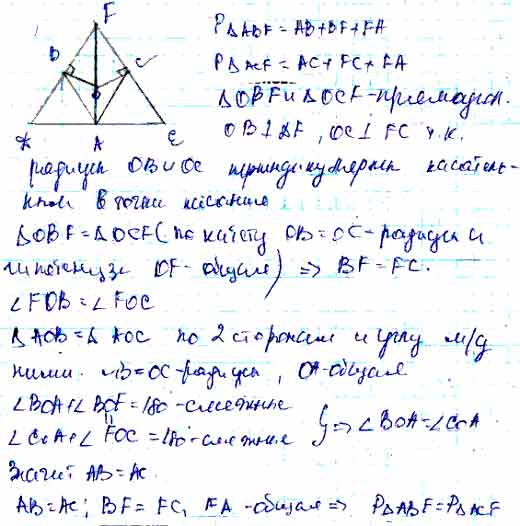 F
B
C
O
A
E
P△ABF = AB + BF + FA
P△ACF = AC + FC + FA
△OBF и △OCF - прямоугольн.
OB⊥DF, OC⊥FC т.к.
радиусы OB и OC перпендикулярны касатель-
ным в точки касания
△OBF = △OCF (по катету OB = OC - радиусы и
гипотенузе OF - общая) => BF = FC.
∠FOB = ∠FOC
△AOB = △AOC по 2 сторонам и углу м/д
ними. OB = OC - радиусы, OA - общая
∠BOA + ∠BOF = 180 - смежные
∠COA + ∠FOC = 180 - смежные } => ∠BOA = ∠COA
Значит AB = AC.
AB = AC; BF = FC, FA - общая => P△ABF = P△ACF